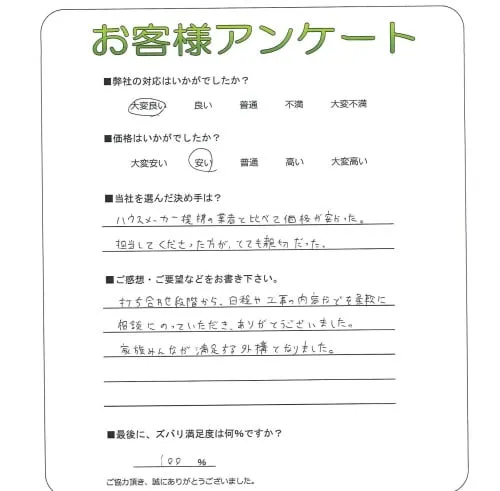 お客様アンケート
■弊社の対応はいかがでしたか？
大変良い 良い 普通 不満 大変不満
■価格はいかがでしたか？
大変安い 安い 普通 高い 大変高い
■当社を選んだ決め手は？
ハウスメーカー提携の業者と比べて価格が安かった。
担当してくださった方が、とても親切だった。
■ご感想・ご要望などをお書き下さい。
打ち合わせ段階から、日程や工事の内容などを柔軟に
相談にのっていただき、ありがとうございました。
家族みんなが満足する外構となりました。
■最後に、ズバリ満足度は何%ですか？
100 %
ご協力頂き、誠にありがとうございました。